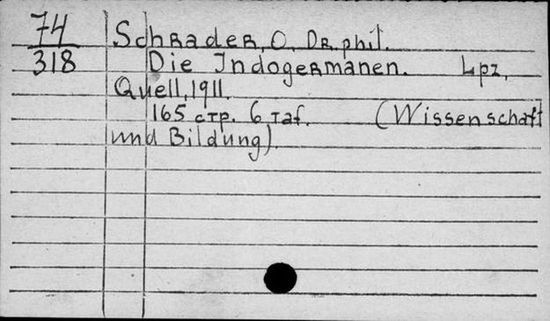 74
318
Schrader, O. Dr. phil.
Die Indogermanen. Lpz,
Quell, 1911.
165 стр. 6 Taf. (Wissenschaft
und Bildung).